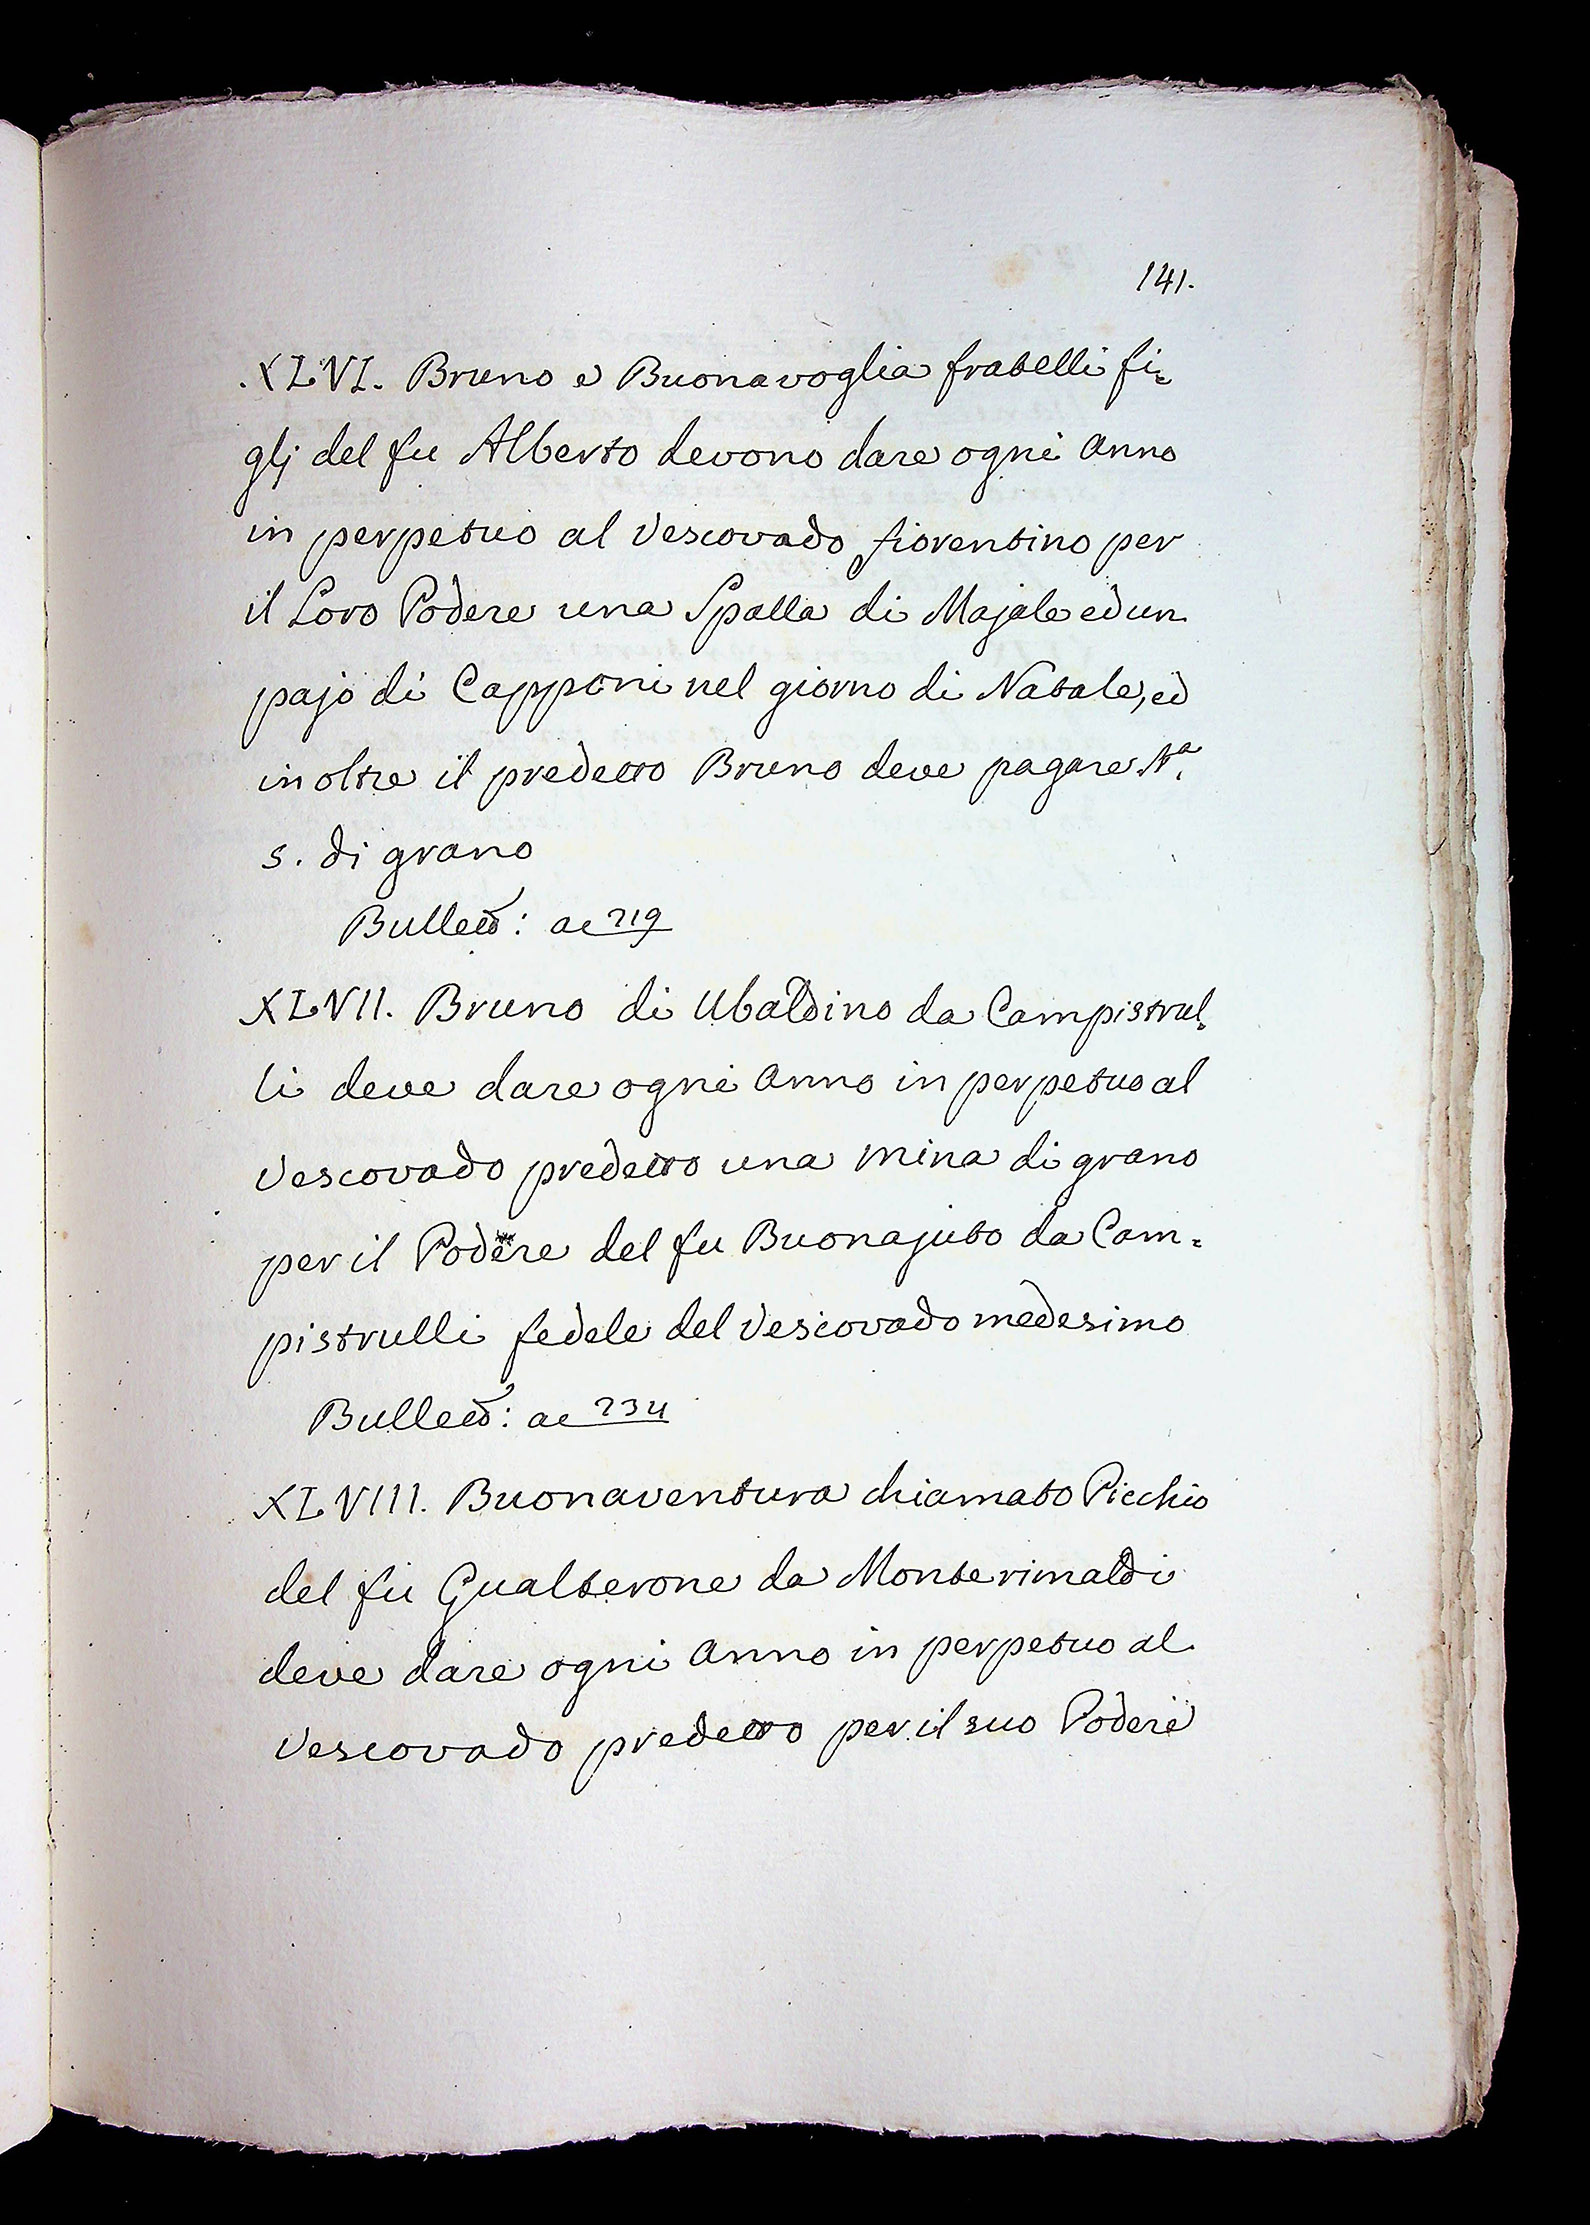 141.
XLVI. Bruno e Buonavoglia fratelli fi=
glj del fu Alberto devono dare ogni Anno
in perpetuo al Vescovado fiorentino per
il Loro Podere una Spalla di Majale ed un
pajo di Capponi nel giorno di Natale, ed
in oltre il predetto Bruno deve pagare
s. di grano
Bullett: ac 219
XLVII. Bruno di Ubaldino da Campistrul=
li deve dare ogni Anno in perpetuo al
Vescovado predetto una mina di grano
per il Podere del fu Buonajuto da Cam=
pistrulli fedele del Vescovado medesimo
Bullett: ac 234
XLVIII. Buonaventura chiamato Picchio
del fu Gualterone da Monterimaldi
deve dare ogni Anno in perpetuo al
Vescovado predetto per il suo Podere